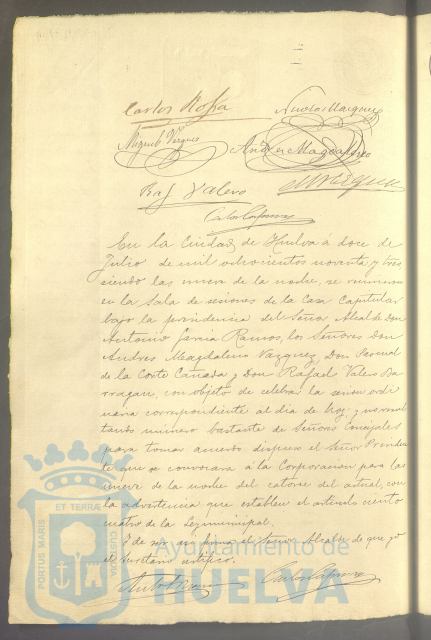 Carlos Rossa Nicolas Marquez
Miguel Vazquez Andres Magdaleno
Raf Valero
En la Ciudad de Huelva á doce de
Julio de mil ochocientos noventa y tres
siendo las nueve de la noche, se reunieron
en la Sala de sesiones de la Casa Capitular
bajo la presidencia del Señor Alcalde Don
Antonio Garcia Ramos, los Señores Don
Andres Magdaleno Vazquez, Don Pascual
de la Corte Cañada y Don Rafael Valero Ba
rragan, con objeto de celebrar la sesion ordi
naria correspondiente al dia de hoy; y no resul
tando número bastante de Señores Concejales
para tomar acuerdo dispuso el Señor Presiden
te que se convocara á la Corporacion para las
nueve de la noche del catorce del actual, con
la advertencia que establece el articulo ciento
cuatro de la Ley municipal.
Y de ser asi firma el Señor Alcalde de que yo
el Secretario certifico.
PORTUS MARIS ET TERRAE CUSTODIA
Ayuntamiento de
HUELVA